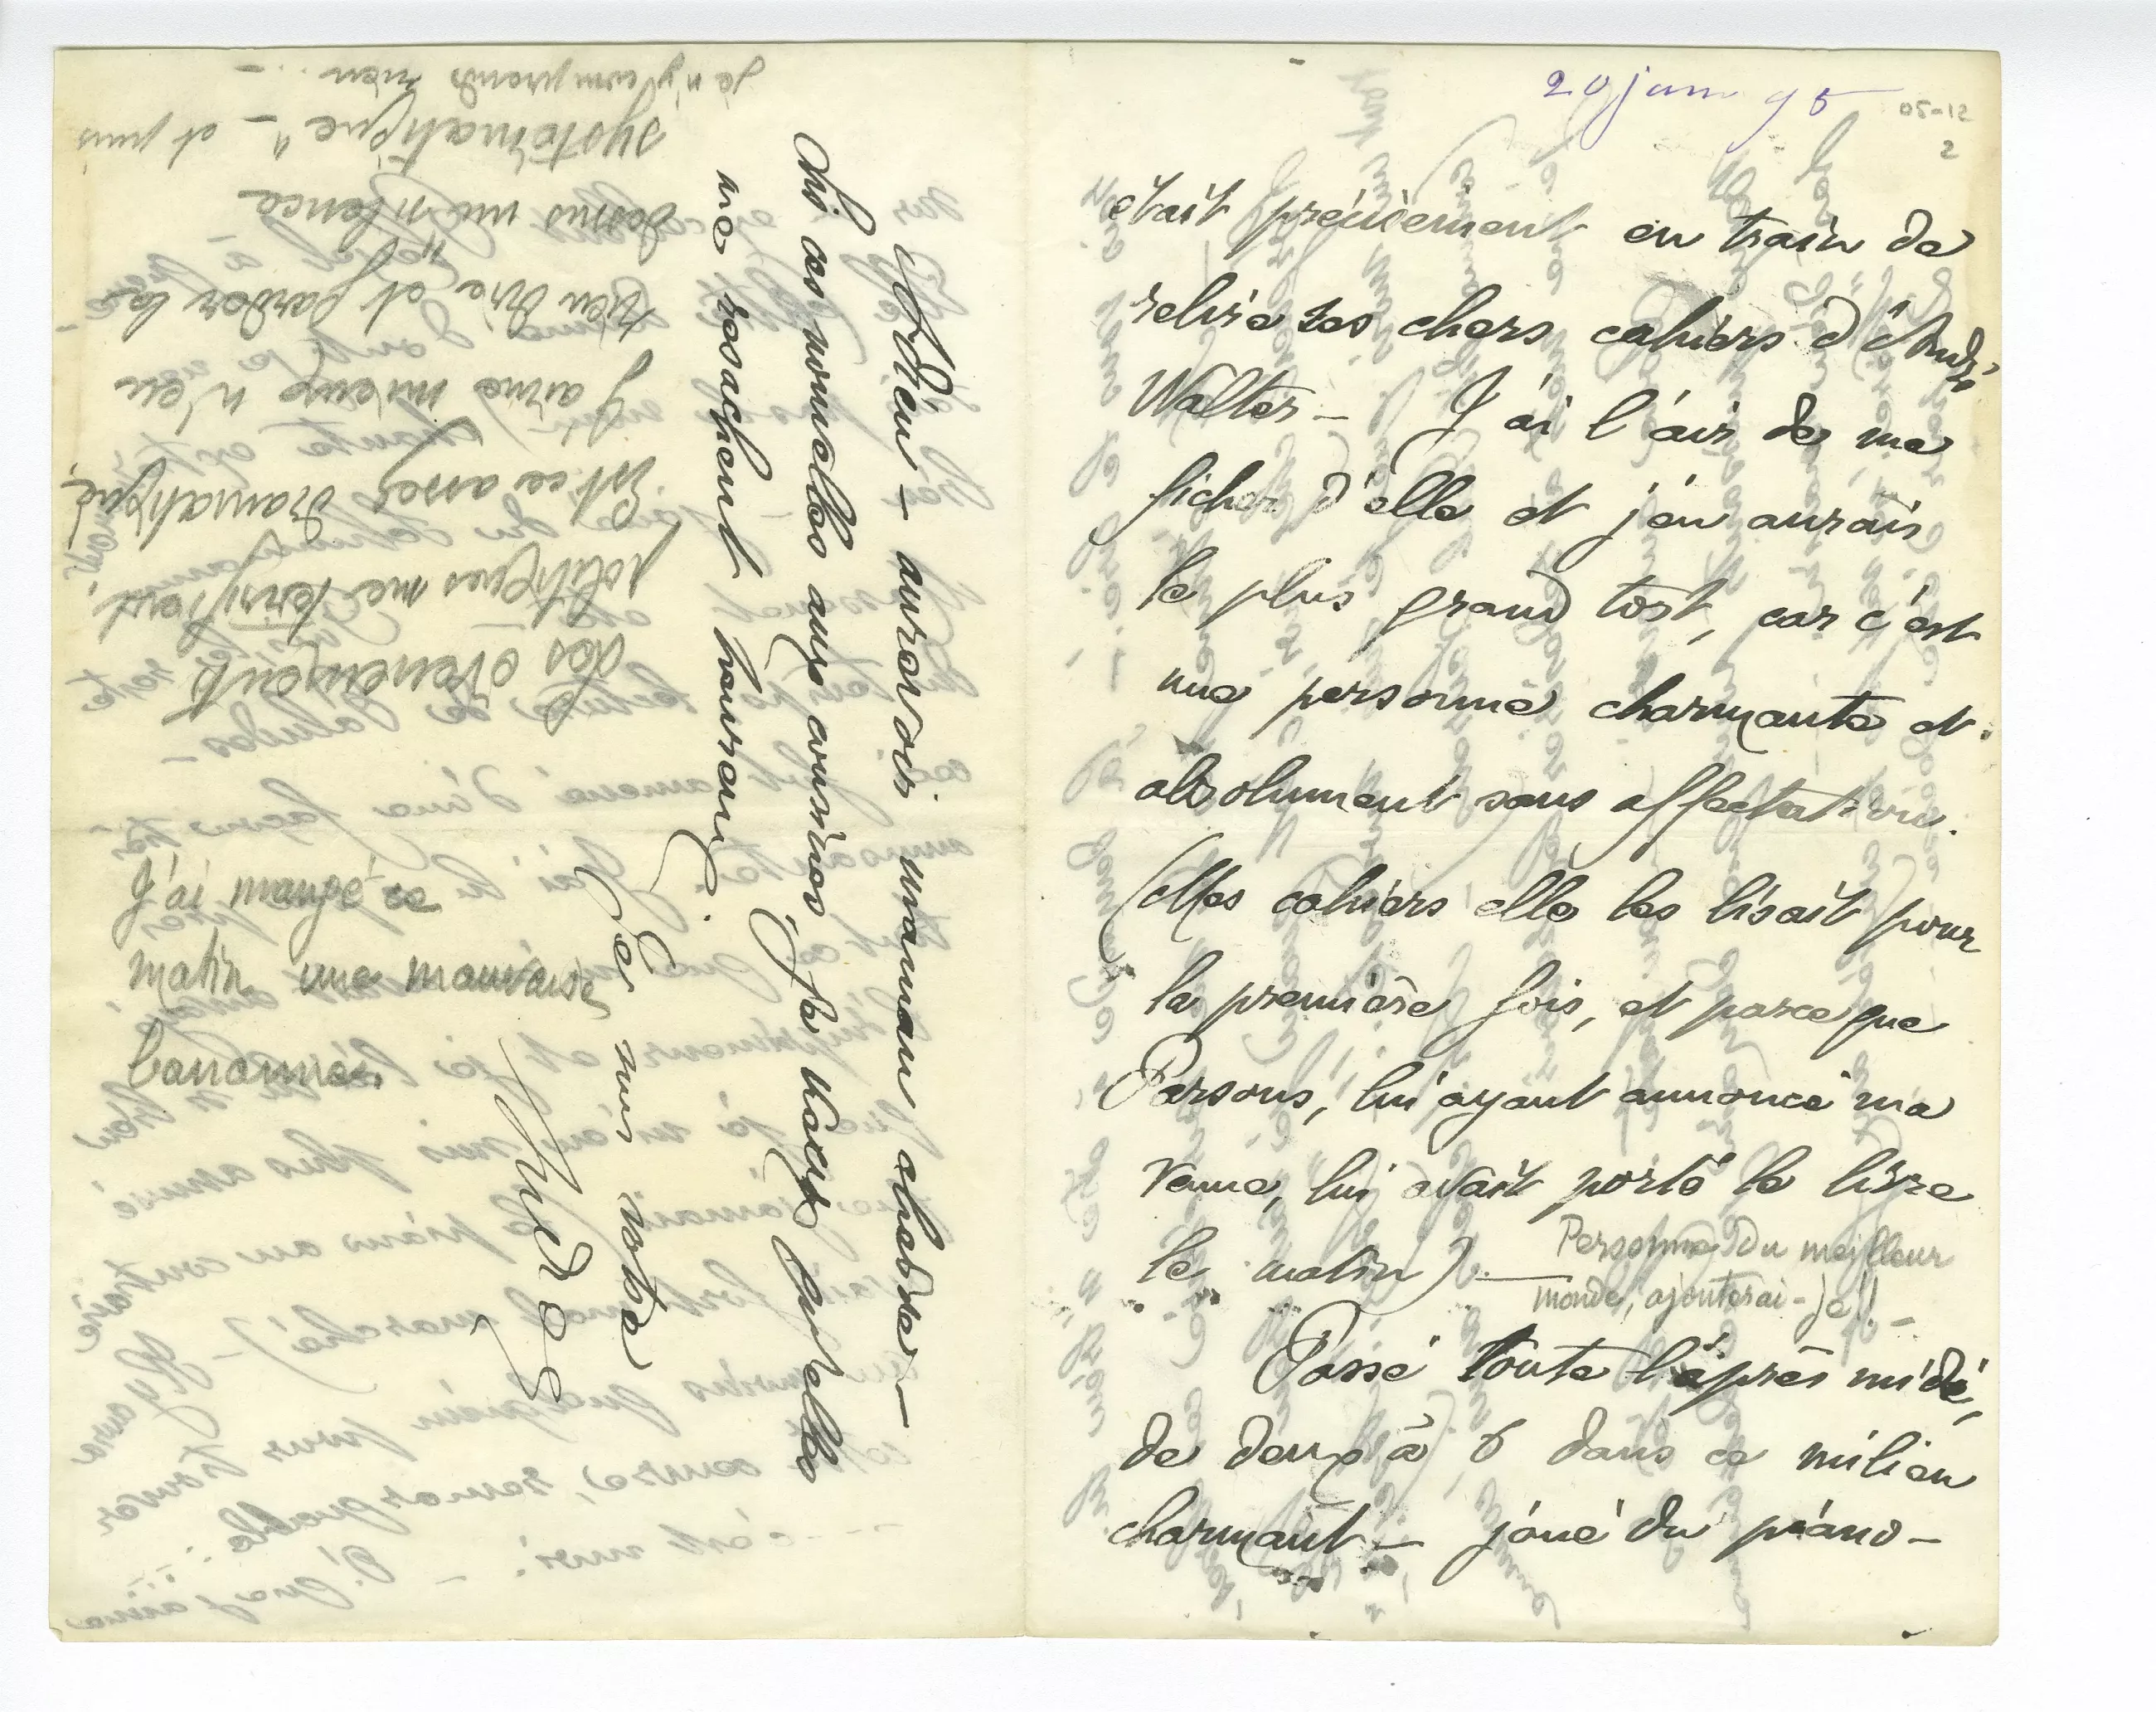 20 juin 95
05-12
2
était précisement en train de
relire ses chers cahiers d'André
Walter – J'ai l'air de me
ficher d'elle et j'en aurais
le plus grand tort, car c'est
une personne charmante et
absolument sans affectation.
(Mes cahiers elle les lisait pour
la première fois, et parce que
Parsons, lui ayant annoncé ma
venue, lui avait porté le livre
le matin) – Personne du meilleur
monde, ajouterai-je!! –
Passé toute l'après midi,
de deux à 6 dans ce milieu
charmant – joué du piano –
Adieu – aurevoir maman
Dis des nouvelles aux cousines,
me rendent heureux.
Je suis votre
André G
Les évènements
politiques me terrifient.
Est ce assez dramatique!
J'aime mieux n'en
rien dire et garder là
dessus un "silence
systématique" – et puis
je n'y comprends rien... –
J'ai mangé ce
matin une mauvaise
banane.